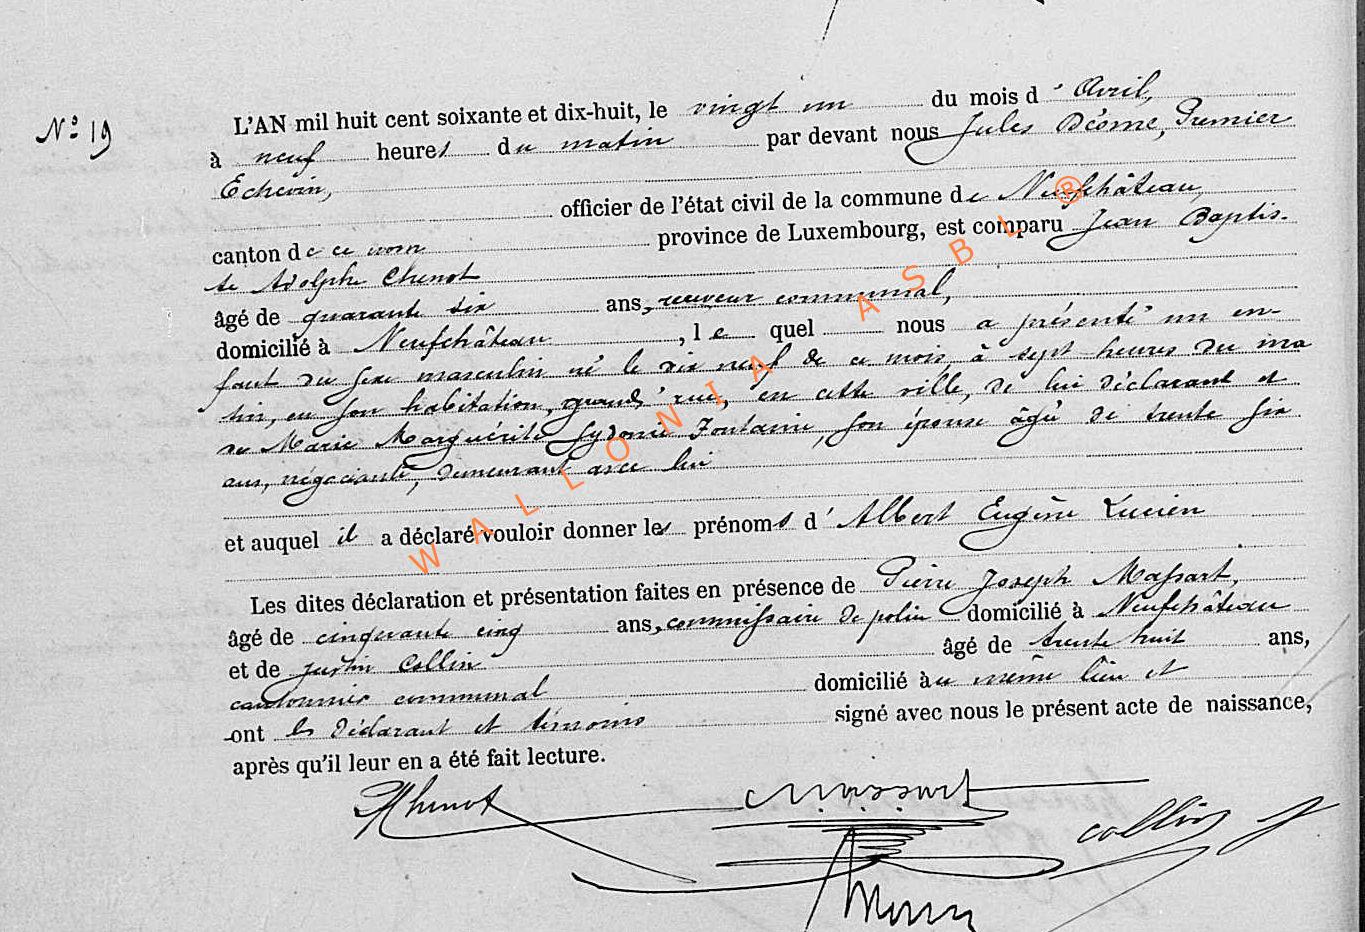 N.º 19
L'AN mil huit cent soixante et dix-huit, le vingt un du mois d'Avril,
à neuf heures du matin par devant nous Jules Désome, Premier
Echevin,
officier de l'état civil de la commune de Neufchâteau,
canton de ce nom province de Luxembourg, est comparu Jean Baptis-
te Adolphe Chenot
âgé de quarante six ans, receveur communal,
domicilié à Neufchâteau, lequel nous a présenté un en-
fant du sexe masculin né le dix neuf de ce mois à sept heures du ma
tin, en son habitation, grand' rue, en cette ville, de lui déclarant et
de Marie Marguérite Sydonie Fontaine, son épouse âgé de trente six
ans, négociante, demeurant avec lui
et auquel il a déclaré vouloir donner les prénoms d'Albert Eugène Lucien
Les dites déclaration et présentation faites en présence de Pierre Joseph Massart,
âgé de cinquante cinq ans, commissaire de police domicilié à Neufchâteau
et de Justin Collin âgé de trente huit ans,
cantonnier communal domicilié au même lieu et
ont les déclarant et témoins signé avec nous le présent acte de naissance,
après qu'il leur en a été fait lecture.
AChenot Massart
Collin J
WALLONIA ASBL ®